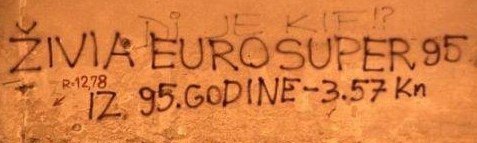 Di JE KIF!?
ŽIVIA EUROSUPER 95
R=12,78
IZ 95.GODINE-3.57 Kn